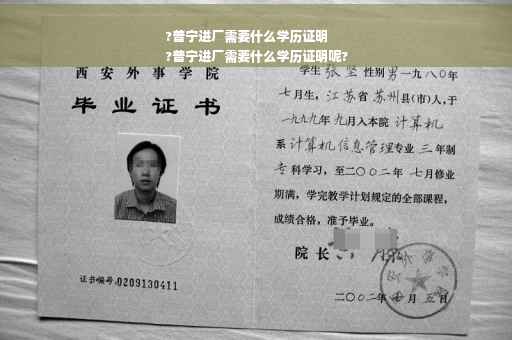 ?普宁进厂需要什么学历证明
?普宁进厂需要什么学历证明呢?
西安外事学院
毕业证书
证书编号:0209130411
学生 张坚 性别 男 一九八〇年
七月生, 江苏省 苏州县(市)人,于
一九九九年 九月入本院 计算机
系 计算机信息管理专业 三 年制
专 科学习,至二〇〇二年 七月修业
期满,学完教学计划规定的全部课程,
成绩合格,准予毕业。
院长
二〇〇二年 七 月 五 日